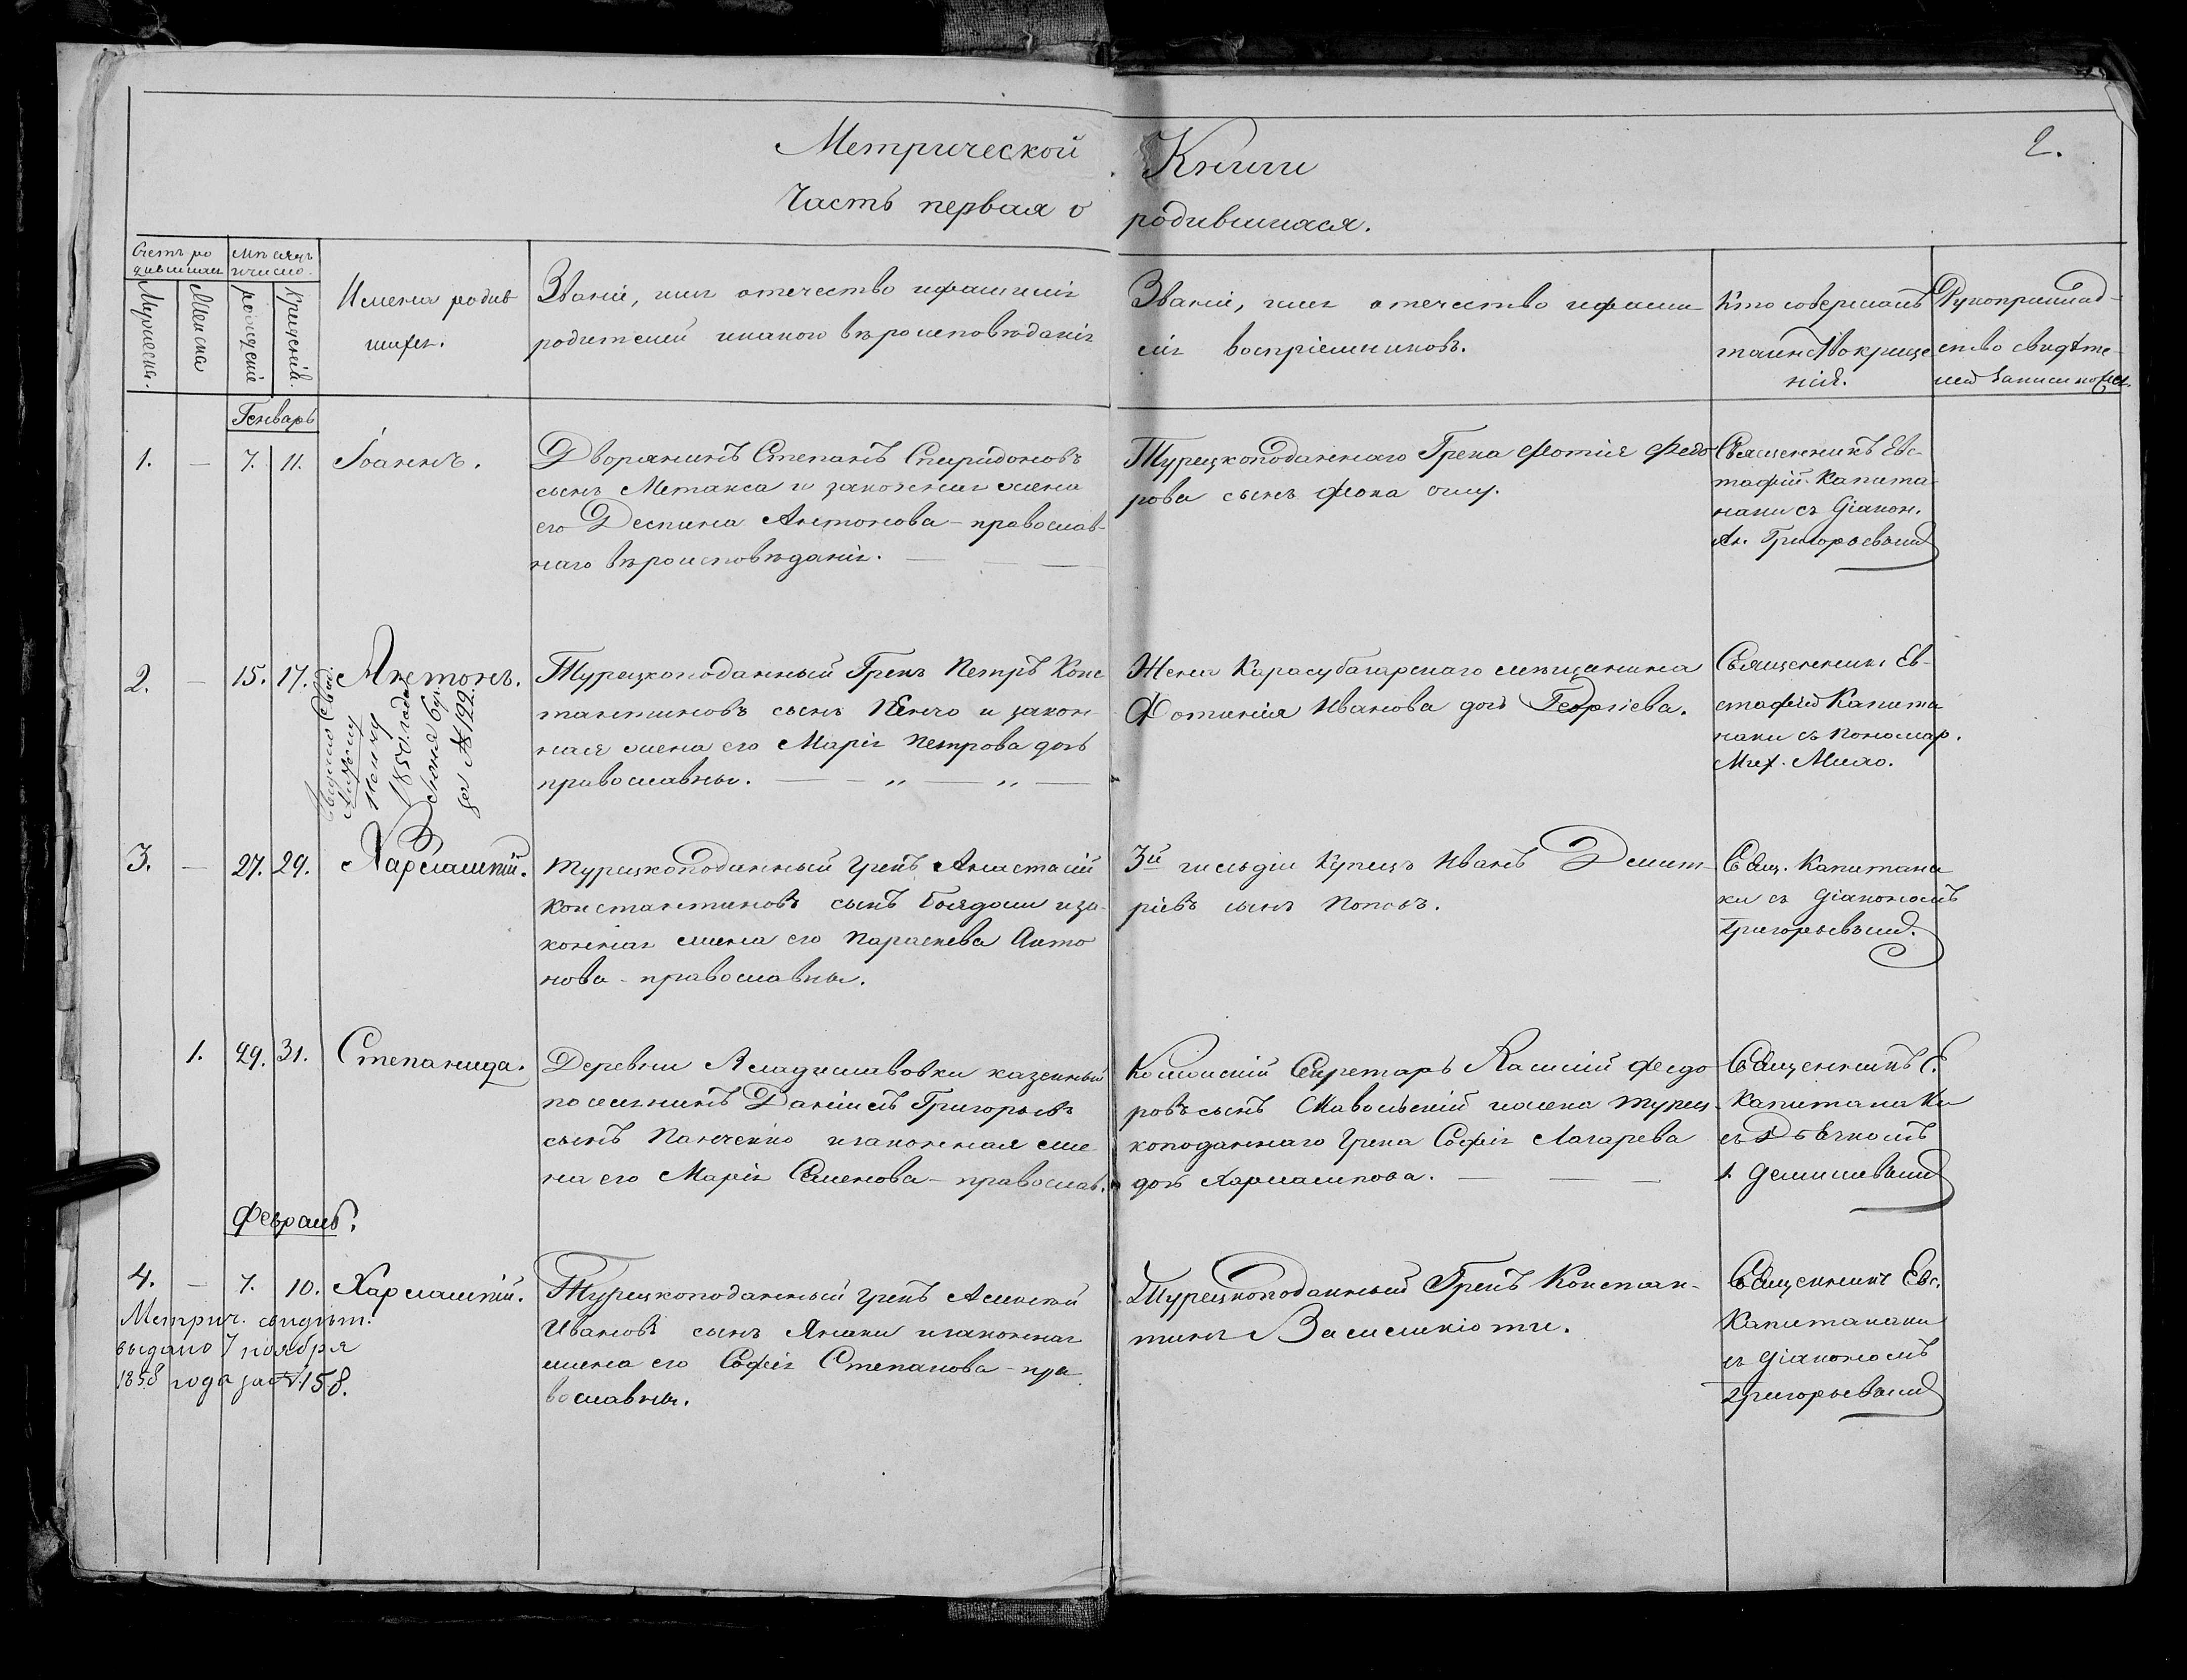 Метрической Книги
2.
Часть первая о родившихся.
Счетъ ро
дившихся
Мѣсяцъ
и число.
Мужеска.
Женска
рожденіе
Крещенія.
Имена родив
шихся.
Званіе, имя отечество и фамилія
родителей и какого вѣроисповѣданія
Званіе, имя отечество и фами
лія воспріемниковъ.
Кто совершалъ
таинство креще
нія.
Рукоприклад-
ство свидѣте-
лей записи по
Генварь
1. — 7. 11. Іоаннъ.
Дворянинъ Степанъ Спиридоновъ
сынъ Метакса и законная жена
его Деспина Антонова – православ-
наго вѣроисповѣданія.
Турецкоподаннаго Грека Фотія Федо
рова сынъ Фока
Священникъ Евс-
тафій Капита
наки съ Діакон.
Ан. Григорьевымъ
2. — 15. 17. Антонъ.
Антону
Ненчу
1850 года
за № 122.
Турецкоподанный Грекъ Петръ Конс
тантиновъ сынъ Ненчо и закон
ная жена его Марія Петрова дочь
православны. — „ — „ —
Жена Карасубазарскаго мѣщанина
Фотинія Иванова дочь Георгіева.
Священникъ Ев-
стафій Капита
наки съ пономар.
Мих. Мило.
3. — 27. 29. Харлампій.
Турецкоподанный Грекъ Анастасій
Константиновъ сынъ Боядоши и за
конная жена его Параскева Анто
нова – православны.
3й гильдіи Купецъ Иванъ Дмит-
ріевъ сынъ Поповъ.
Свящ. Капитана
ки съ Діакономъ
Григорьевымъ.
1. 29. 31. Степанида.
Деревни Владиславовки казенный
поселянинъ Даніилъ Григорьевъ
сынъ Панченко и законная же
на его Марія Семенова – православ.
Колежскій Секретарь Василій Федо
ровъ сынъ и жена турец
коподаннаго Грека Софія Лазарева
дочь Харлампова. — — —
Священникъ Е.
Капитанаки
съ Дьячкомъ
Февраль.
4. — 7. 10. Харлампій.
Метрич. свидѣт.
выдано 7 ноября
1858 года за № 158.
Турецкоподанный Грекъ Алексѣй
Ивановъ сынъ Янаки и законная
жена его Софія Степанова – пра
вославны.
Турецкоподанный Грекъ Констан-
тинъ Василикіоти.
Священникъ Евс.
Капитанаки
съ Діакономъ
Григорьевымъ